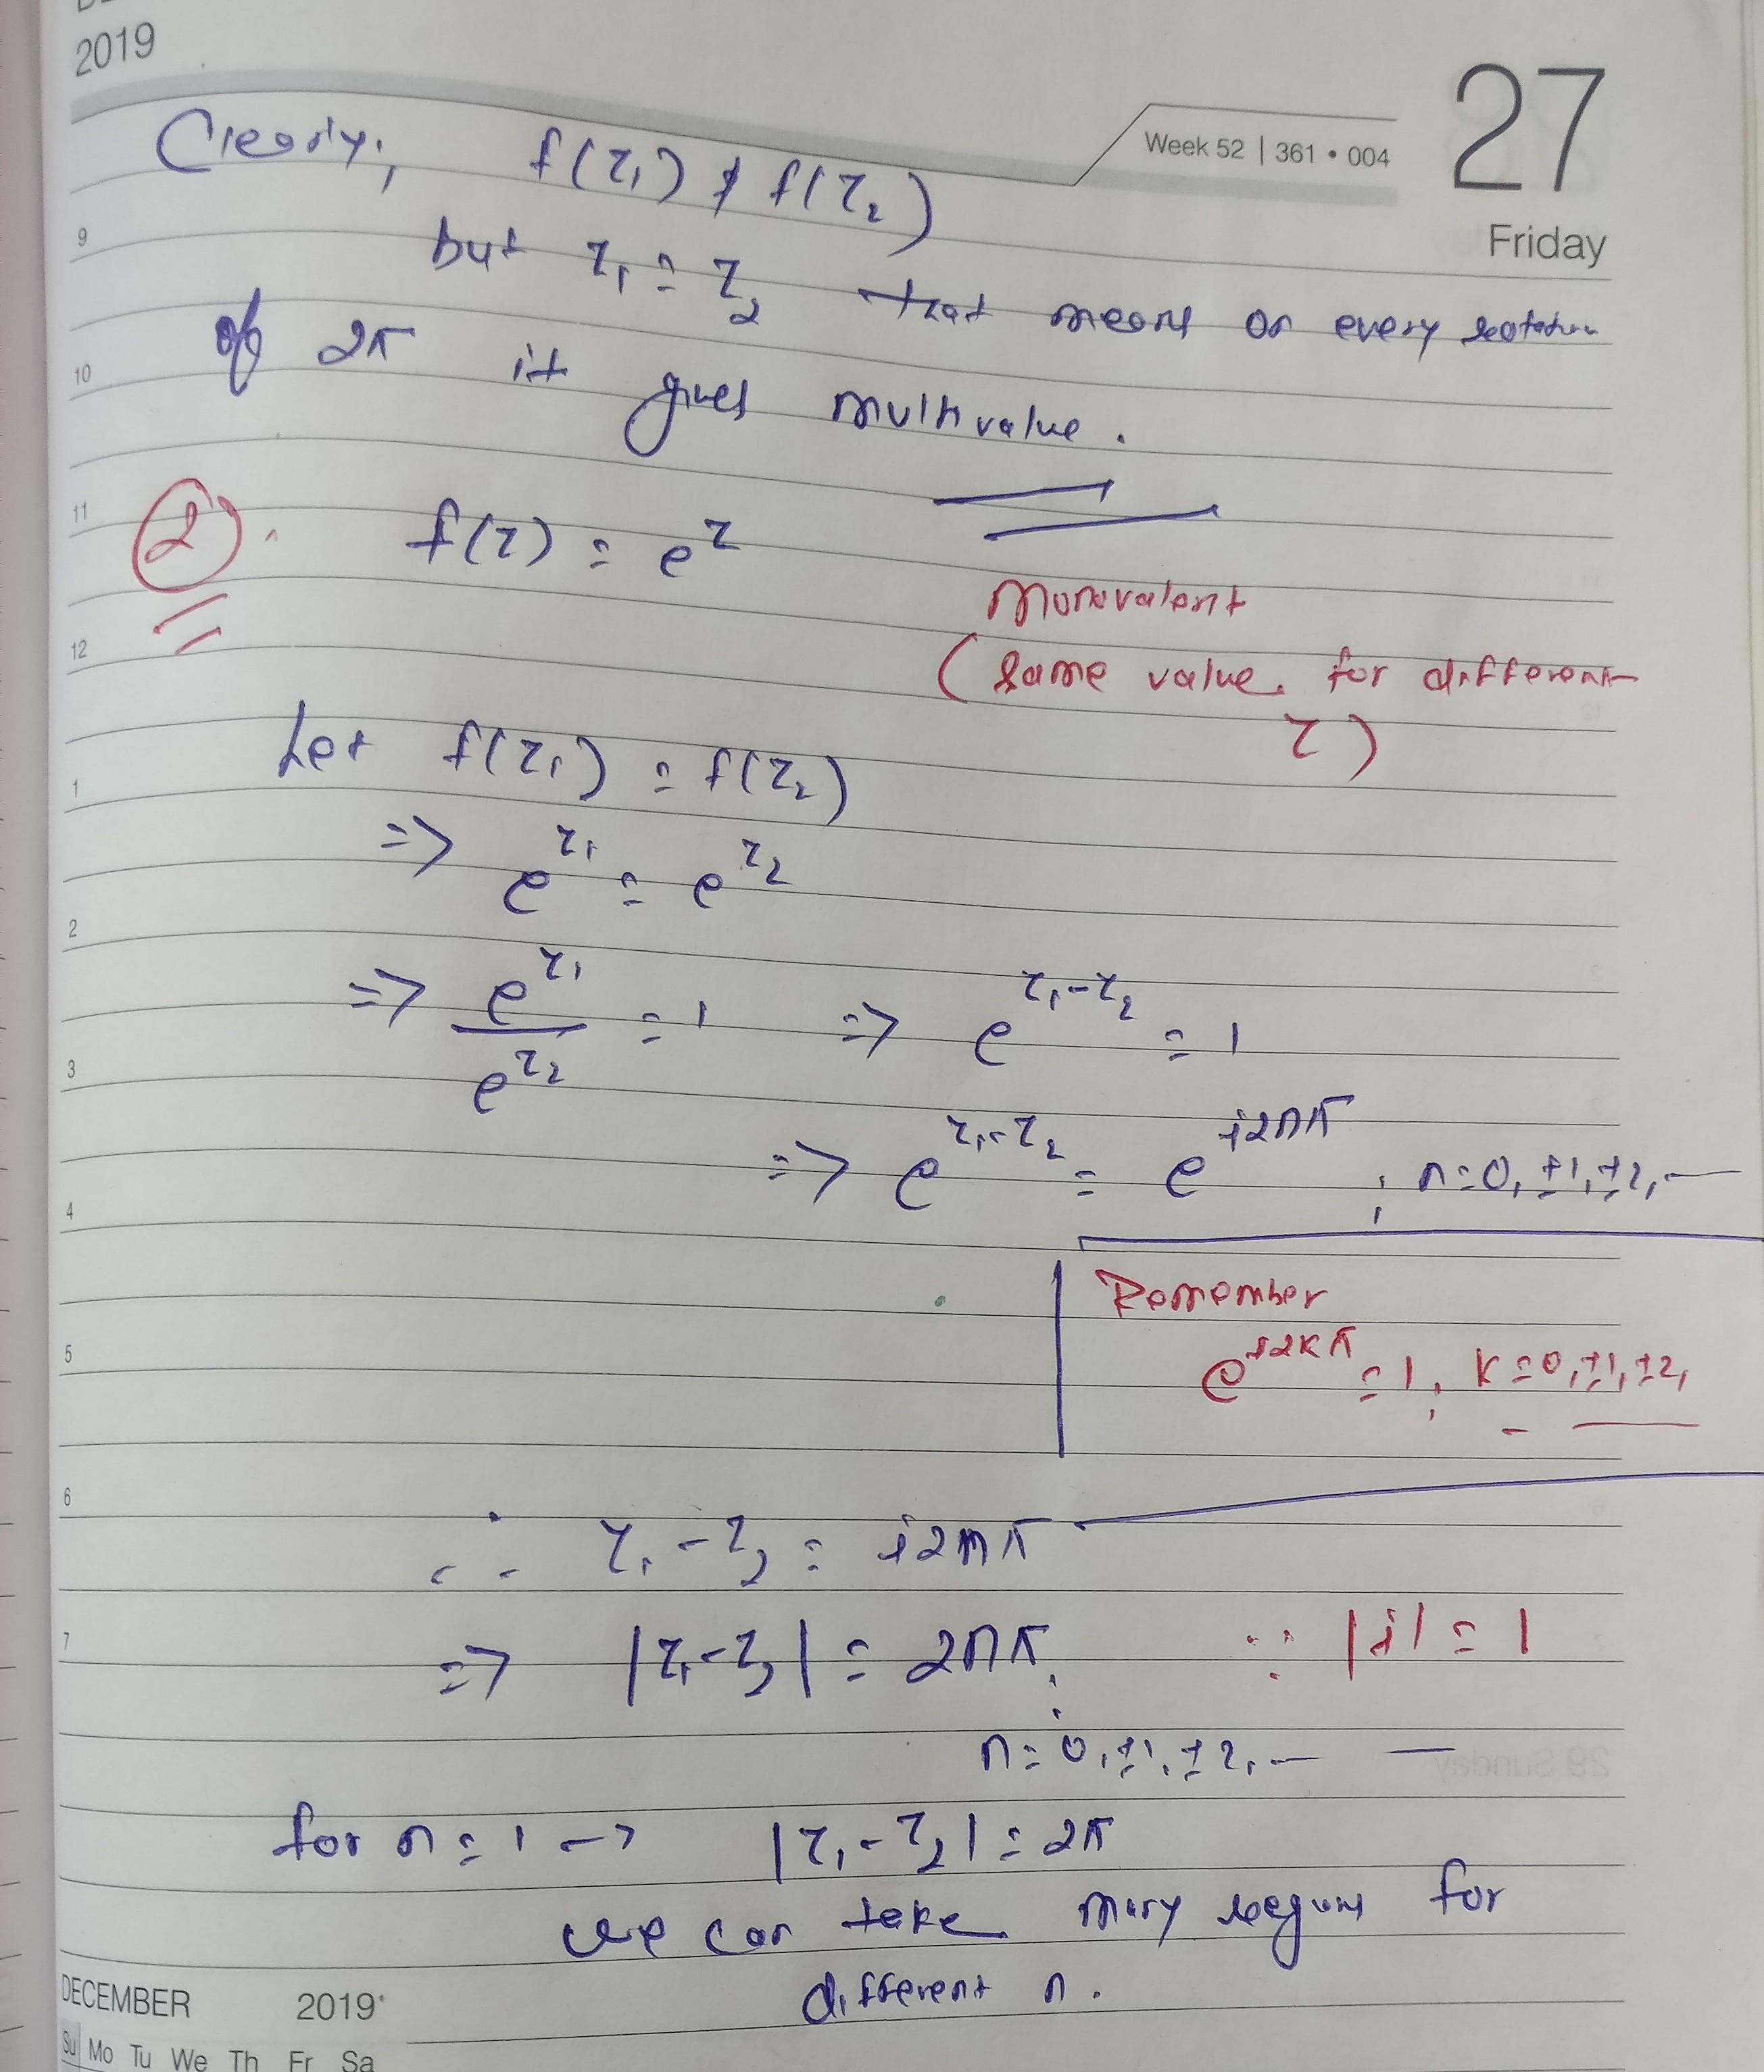 2019
Week 52 | 361 • 004
27
Friday
Clearly, f(z₁) ≠ f(z₂)
but z₁ = z₂ that means on every rotation
of 2π it gives multivalue.
②. f(z) = e^z
Monovalent
(same value for different
z)
Let f(z₁) = f(z₂)
=> e^z₁ = e^z₂
=> e^z₁/e^z₂ = 1 => e^(z₁-z₂) = 1
=> e^(z₁-z₂) = e^(i2nπ) ; n=0, ±1, ±2, —
Remember
e^(i2kπ) = 1 ; k=0, ±1, ±2,
- —
∴ z₁ - z₂ = i2nπ
=> |z₁-z₂| = 2nπ ; ∵ |i| = 1
n=0, ±1, ±2, — —
for n=1 -> |z₁-z₂| = 2π
we can take many regions for
different n.
9
10
11
12
1
2
3
4
5
6
7
DECEMBER 2019
Su Mo Tu We Th Fr Sa